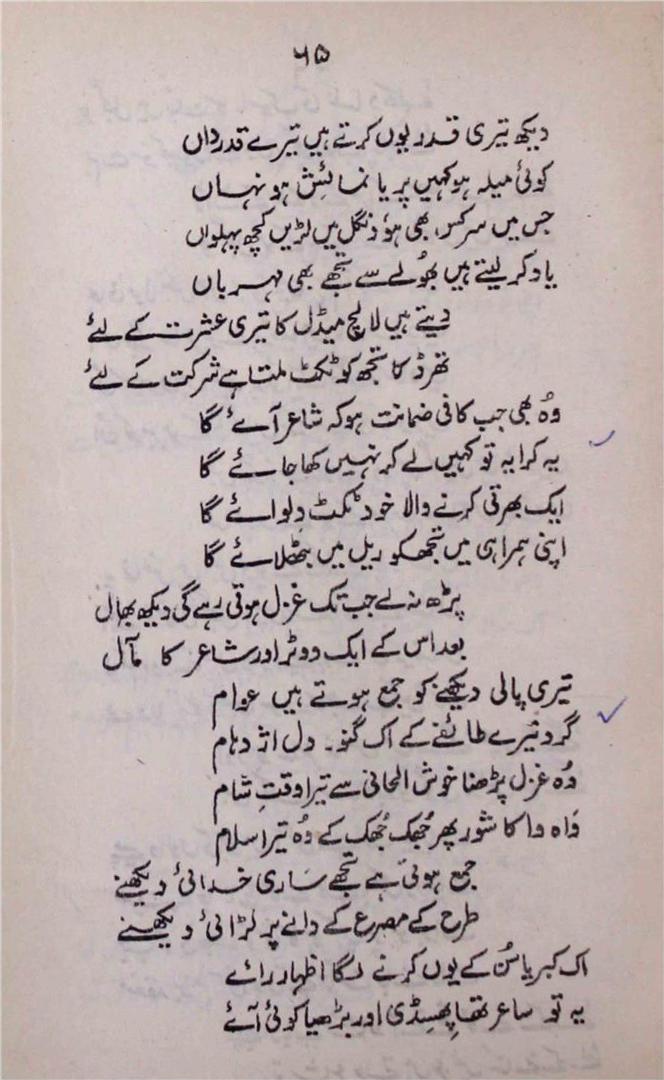 ۶۵
دیکھ تیری قدر یوں کرتے ہیں تیرے قدرداں
کوئی میلہ ہو کہیں پر یا نمائش ہو نہاں
جس میں سرکس، بھی ہو، دنگل میں لڑیں کچھ پہلواں
یاد کر لیتے ہیں بھُولے سے تجھے بھی مہرباں
دیتے ہیں لالچ میڈل کا تیری عشرت کے لئے
تھرڈ کا تجھ کو ٹکٹ ملتا ہے شرکت کے لئے
وُہ بھی جب کافی ضمانت ہو کہ شاعر آئے گا
یہ کرایہ تو کہیں لے کر نہیں کھا جائے گا
ایک بھرتی کرنے والا خود ٹکٹ دِلوائے گا
اپنی ہمراہی میں تجھکو ریل میں بٹھلائے گا
پڑھ نہ لے جب تک غزل ہوتی رہے گی دیکھ بھال
بعد اس کے ایک ووٹر اور شاعر کا مآل
تیری پالی دیکھنے کو جمع ہوتے ہیں عوام
گرد تیرے طائفے کے اک گنو۔ دل اژدہام
وُہ غزل پڑھنا خوش الحانی سے تیرا وقتِ شام
وَاہ وا کا شور پھر جُھک جُھک کے وُہ تیرا سلام
جمع ہوتی ہے تجھے سَاری خدائی دیکھنے
طرح کے مصرع کے دانے پر لڑائی دیکھنے
اک کبریا سُن کے یوں کرنے لگا اظہار رائے
یہ تو ساعر تھا پھِسڈی اور بڑھیا کوئی آئے